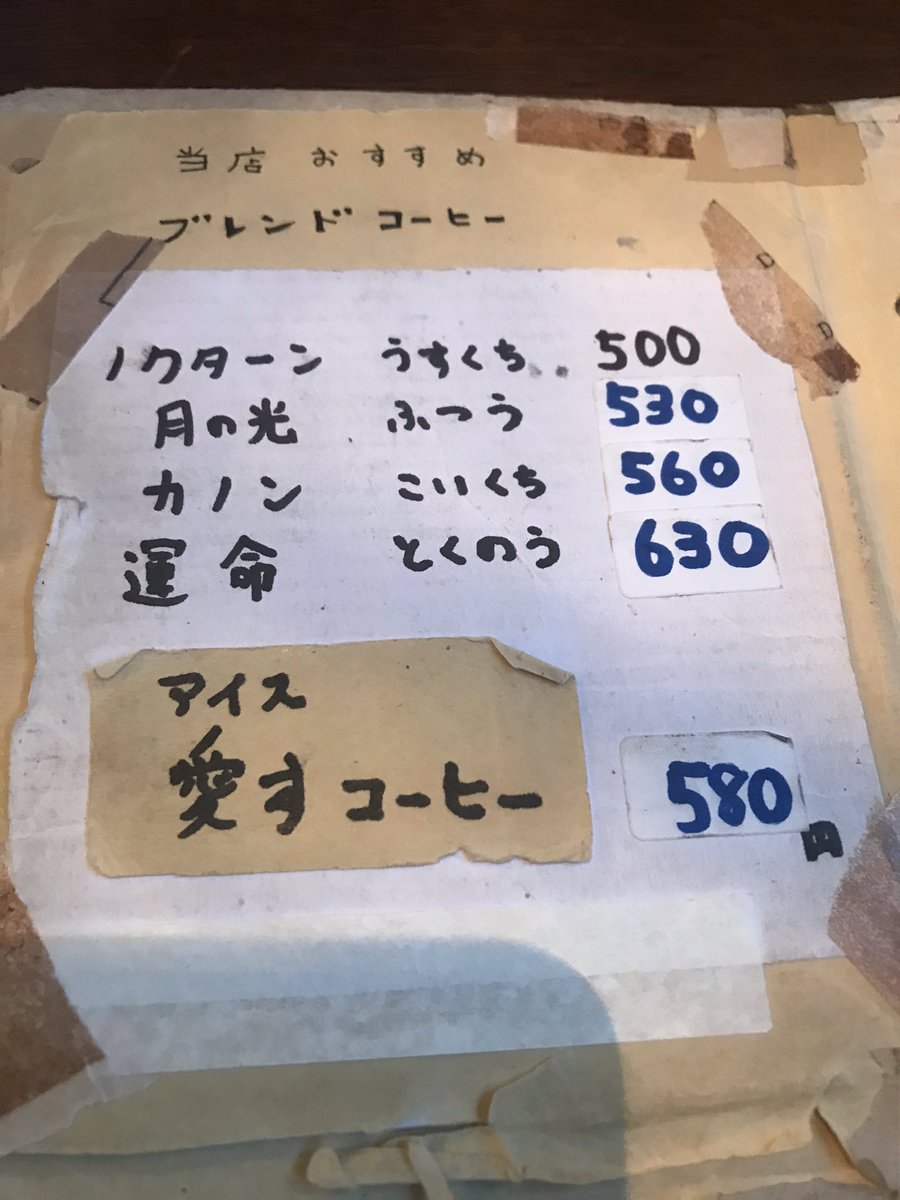 当店 おすすめ
ブレンド コーヒー
ノクターン うすくち 500
月の光 ふつう 530
カノン こいくち 560
運命 とくのう 630
アイス
愛す コーヒー 580
円